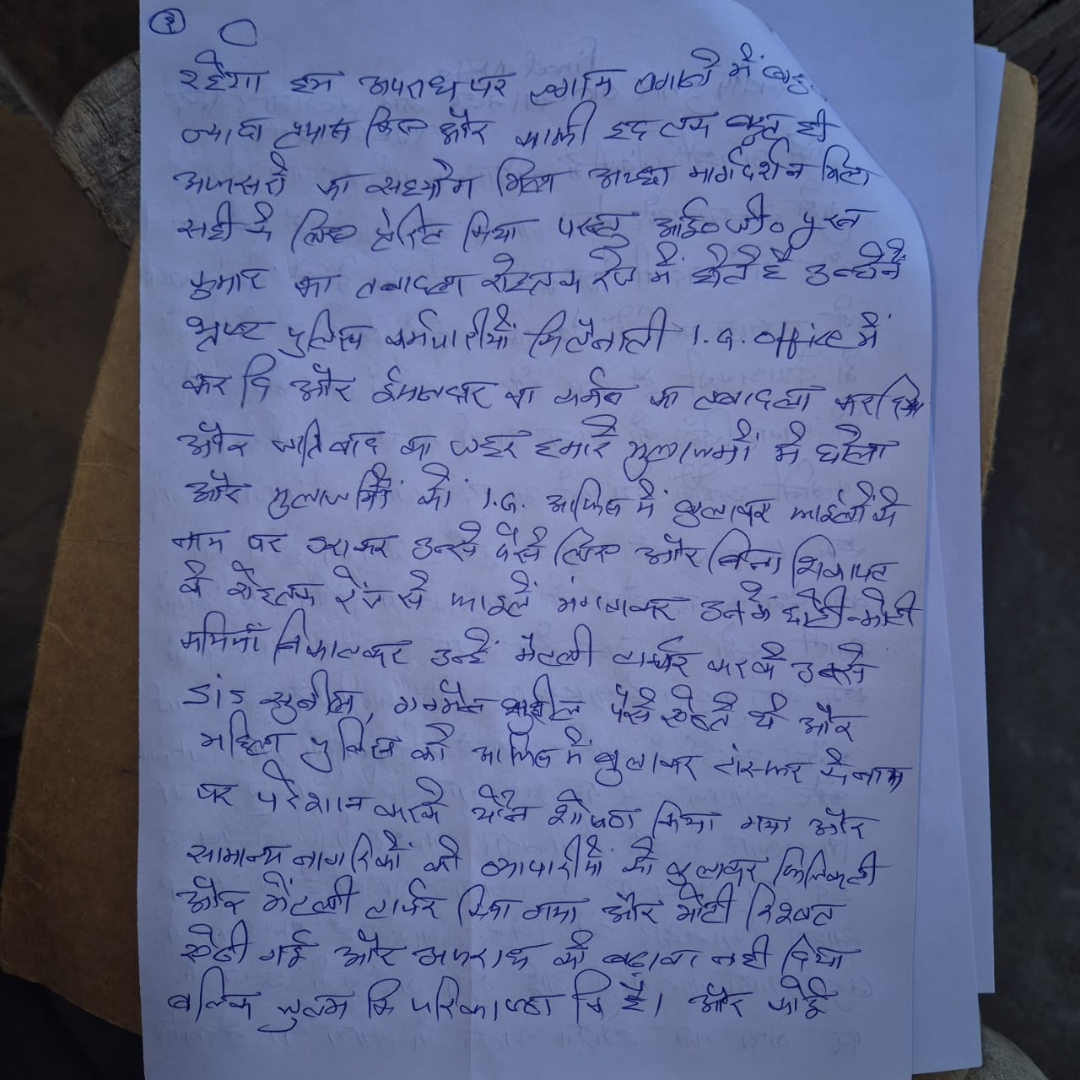 ३
रहेगा हम अपराध पर लगाम लगाने में बहु
ज्यादा प्रयास किए और काफी हद तक बहुत ही
अफसरों का सहयोग मिला अच्छा मार्गदर्शन मिला
सही के लिए प्रेरित किया परन्तु आई० जी० पुरन
कुमार का तबादला रोहतक रेंज में होते है उन्होंने
भ्रष्ट पुलिस कर्मचारीयों कि तैनाती I.G. office में
कर दि और ईमानदार का तबादला कर दिया
और जातिवाद का जहर हमारे मुलाजमों में घोला
और मुलाजमों को I.G. आफिस में बुलाकर फाईलों के
नाम पर डराकर उनसे पैसे लिए और बिना शिकायत
के रोहतक रेंज से फाइलें मंगवाकर उनके छोटी-मोटी
कमियां निकालकर उन्हें मैंटली टार्चर करके उनसे
SIS सुनील, गनमैन सुशील पैसे ऐंठते थे और
महिला पुलिस को आफिस में बुलाकर ट्रांसफर के नाम
पर परेशान करके यौन शोषण किया गया और
सामान्य नागरिकों को व्यापारीयों को बुलाकर फिजिकली
और मेंटली टार्चर किया गया और मोटी रिश्वत
ऐंठी गई और अपराध को बढ़ावा नही दिया
बल्कि जुल्म कि परिकाष्ठा कि है। और कोई